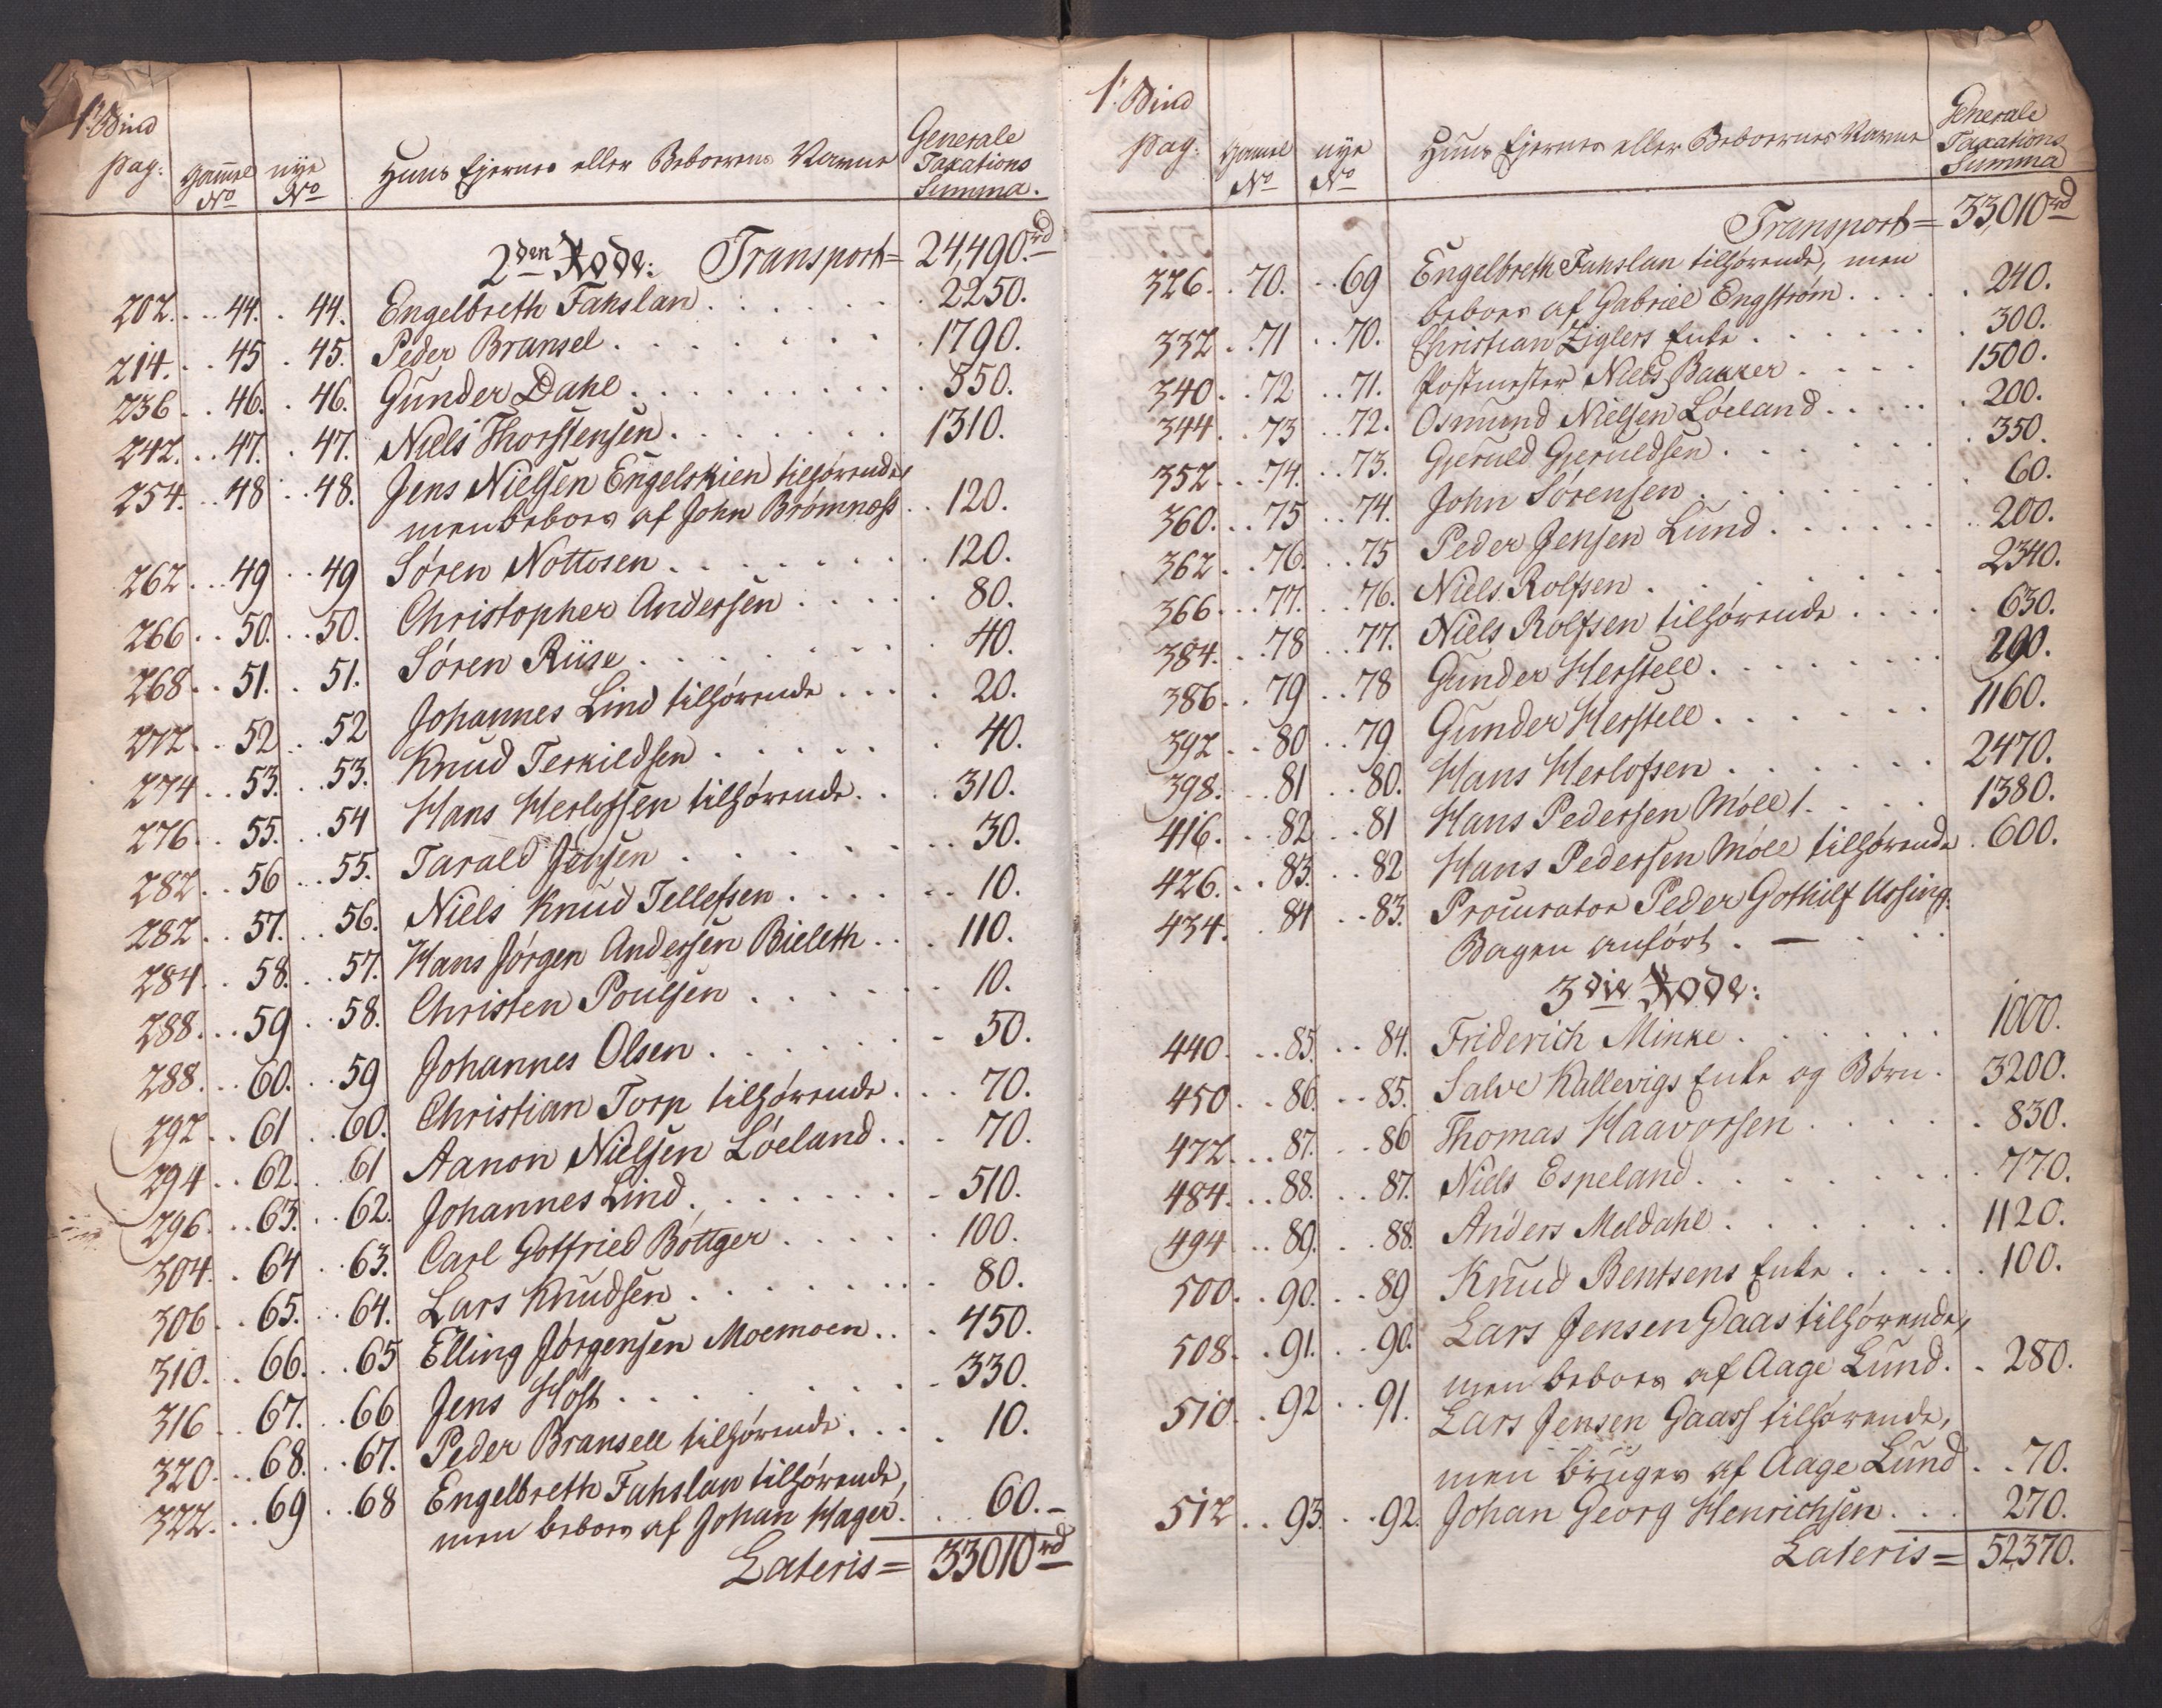 1ste Bind
Pag: Gammel No nye No Huus Ejernes eller Beboernes Navne Generale Taxations Summa.
2den Rode: Transport = 24,490.rd
202. 44. 44. Engelbreth Fahslan 2250.
214. 45 45. Peder Bransel 1790.
236 46. 46. Gunder Dahl 550.
242. 47. 47. Niels Thorstensen 1310.
254. 48 48. Jens Nielsen Engelskien tilhørende,
men beboes af John Brømnæss 120.
262 49 49 Søren Nottosen 120.
266 50. 50. Christopher Andersen 80.
268 51. 51. Søren Riise 40.
272 52 52 Johannes Lind tilhørende 20.
274 53. 53. Knud Terkildsen 40.
276 55. 54 Hans Herlofsen tilhørende 310.
282 56 55. Tarald Jensen 30.
282 57. 56. Niels Knud Tellefsen 10.
284 58. 57. Hans Jørgen Andersen Bieleth 110.
288 59 58. Christen Poulsen 10.
288 60. 59 Johannes Olsen 50.
292 61 60. Christian Torp tilhørende 70.
294 62. 61 Aanon Nielsen Løeland 70.
296 63. 62. Johannes Lind 510.
304. 64 63. Carl Gotfried Böttger 100.
306 65. 64. Lars Knudsen 80.
310. 66. 65 Elling Jørgensen Moemoen 450.
316 67. 66 Jens Høst 330.
320 68. 67. Peder Bransell tilhørende 10.
322. 69 68 Engelbreth Fahslan tilhørende,
men beboes af Johan Hager. 60.-
Lateris = 33010rd
1. Bind
Pag: Gammel No nye No Huus Ejernes eller Beboernes Navne Generale Taxations Summa
Transport = 33,010rd
326 70. 69 Engelbreth Fahslan tilhørende, men
beboes af Gabriel Engstrøm 240.
332 71 70. Christian Ziglers Enke 300.
340 72 71. Postmester Niels Bakker 1500.
344 73 72. Osmund Nielsen Løeland 200.
352 74. 73. Gjeruld Gjeruldsen 350.
360. 75 74. John Sørensen 60.
362 76. 75 Peder Jensen Lund 200.
366 77. 76. Niels Rolfsen 2340.
384. 78 77. Niels Rolfsen tilhørende 630.
386 79 78 Gunder Herstell 290.
392 80 79 Gunder Herstell 1160.
398. 81 80. Hans Herlofsen 2470.
416. 82 81 Hans Pedersen Møll 1380.
426. 83. 82 Hans Pedersen Møll tilhørende 600.
434. 84 83. Procurator Peder Gothilf Ussing.
Bagen anført. —
3die Rode:
440. 85. 84. Friderich Minke 1000.
450 86. 85. Salve Kallevigs Enke og Børn 3200.
472 87. 86 Thomas Haavorsen 830.
484. 88. 87. Niels Espeland 770.
494 89. 88. Anders Meldahl 1120.
500. 90. 89 Knud Bentsens Enke 100.
508. 91. 90. Lars Jensen Gaas tilhørende,
men beboes af Aage Lund. 280.
510. 92 91. Lars Jensen Gaass tilhørende,
men bruges af Aage Lund 70.
512 93. 92. Johan Georg Henrichsen 270.
Lateris = 52,370.